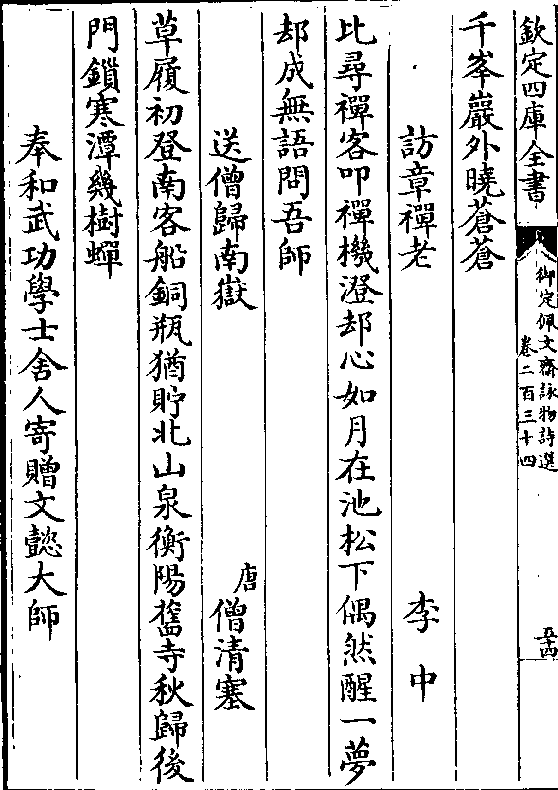 欽定四庫全書
御定佩文齋詠物詩選
卷二百三十四
五十四
千峯巖外曉蒼蒼
訪章禪老
李中
比尋禪客叩禪機澄却心如月在池松下偶然醒一夢
却成無語問吾師
送僧歸南嶽
唐
僧清塞
草履初登南客船銅瓶猶貯北山泉衡陽舊寺秋歸後
門鎖寒潭幾樹蟬
奉和武功學士舍人寄贈文懿大師